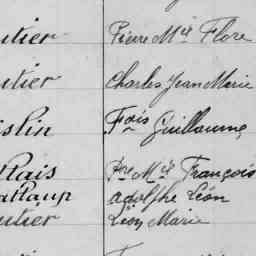 utier Pierre Mie Flore
utier Charles Jean Marie
islin Fois Guillaume
Rais Pre Mie François
Adolphe Léon
utier Léon Marie